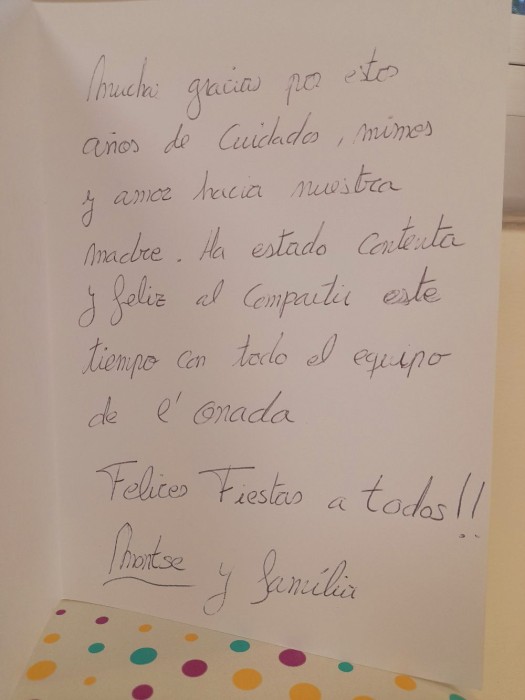 Muchas gracias por estos
años de Cuidados, mimos
y amor hacia nuestra
madre. Ha estado Contenta
y feliz al Compartir este
tiempo con todo el equipo
de l'onada
Felices Fiestas a todos!!
Montse y família